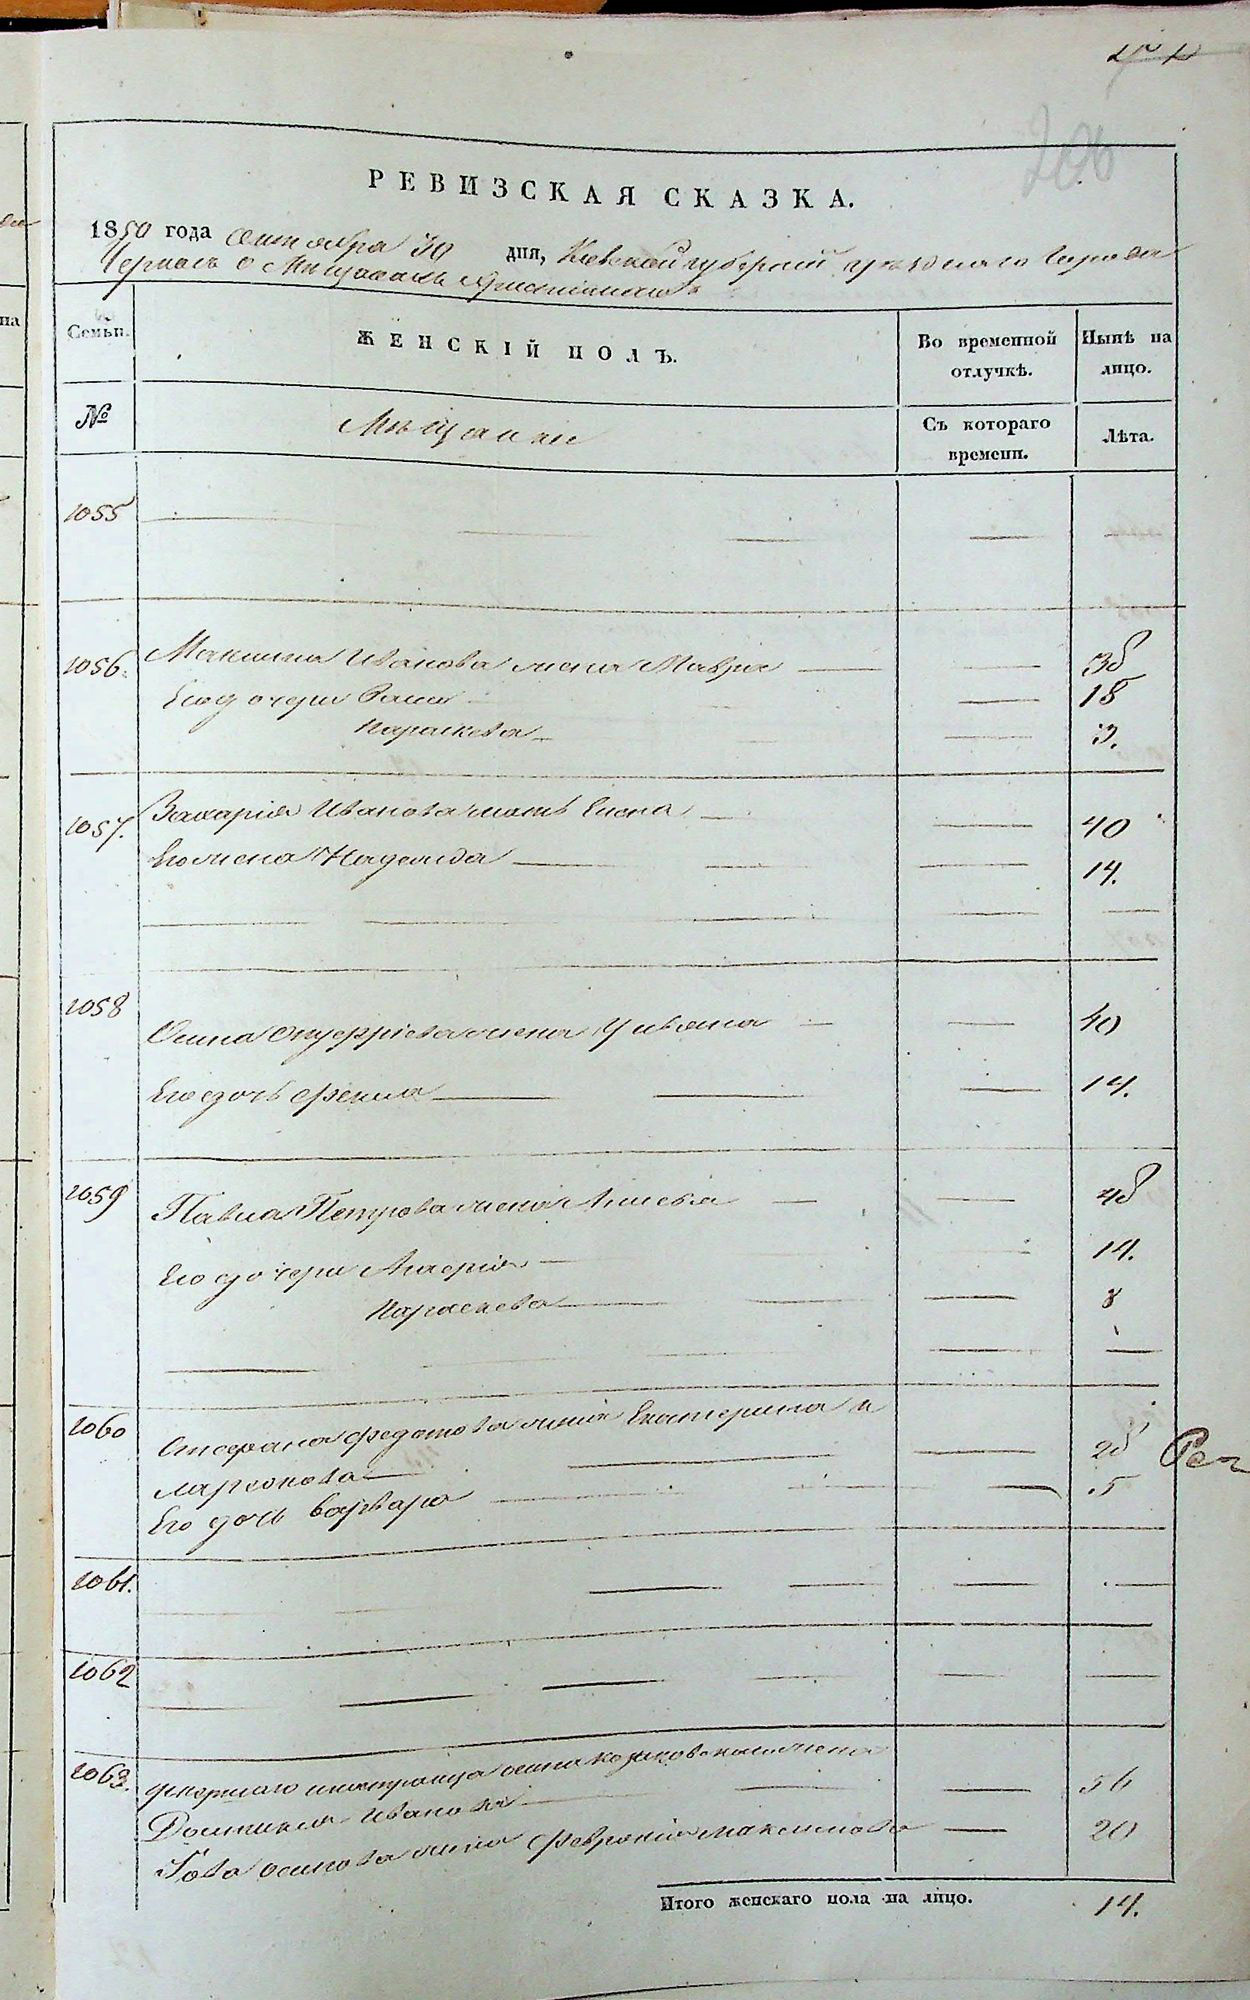 206
РЕВИЗСКАЯ СКАЗКА.
1850 года Октября 30 дня, Киевской губернии уезднаго города
о Мещанахъ Христіанахъ
Семьи. ЖЕНСКІЙ ПОЛЪ. Во временной отлучкѣ. Нынѣ на лицо.
№ Мѣщанки Съ котораго времени. Лѣта.
1055
1056. Максима Иванова жена Мавра 38
Его дочери 18
Параскева 3.
1057. Захарія Иванова мать Елена 40
Его жена Надежда 14.
1058 Осипа Онуфріева жена Ульяна 40
Его дочь Фекла 14.
1059 Павла Петрова жена 48
Его дочери Марія 14.
Параскева 8
1060 Стефана Федотова жена Екатерина И
ларіонова 28
Его дочь Варвара 5
1061.
1062
1063. иностранца Осипа жена
Доминикія Иванова 56
Осипова жена Февронія Максимова 20
Итого женскаго пола на лицо. 14.